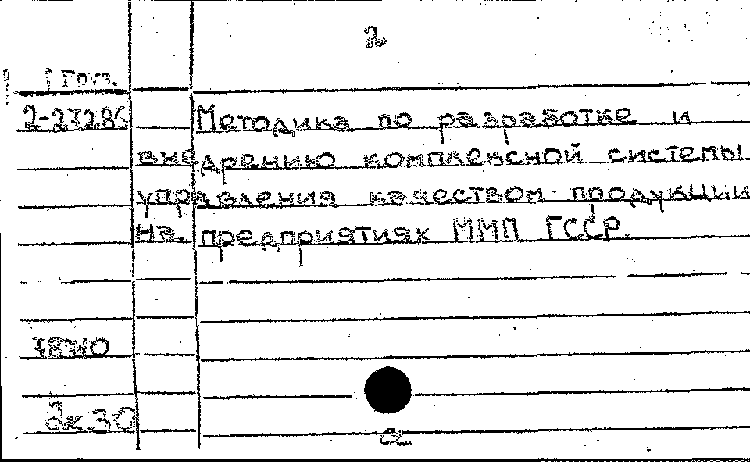 2
Методика по разработке и
внедрению комплексной системы
управления качеством продукции
на предприятиях ММП ГССР.